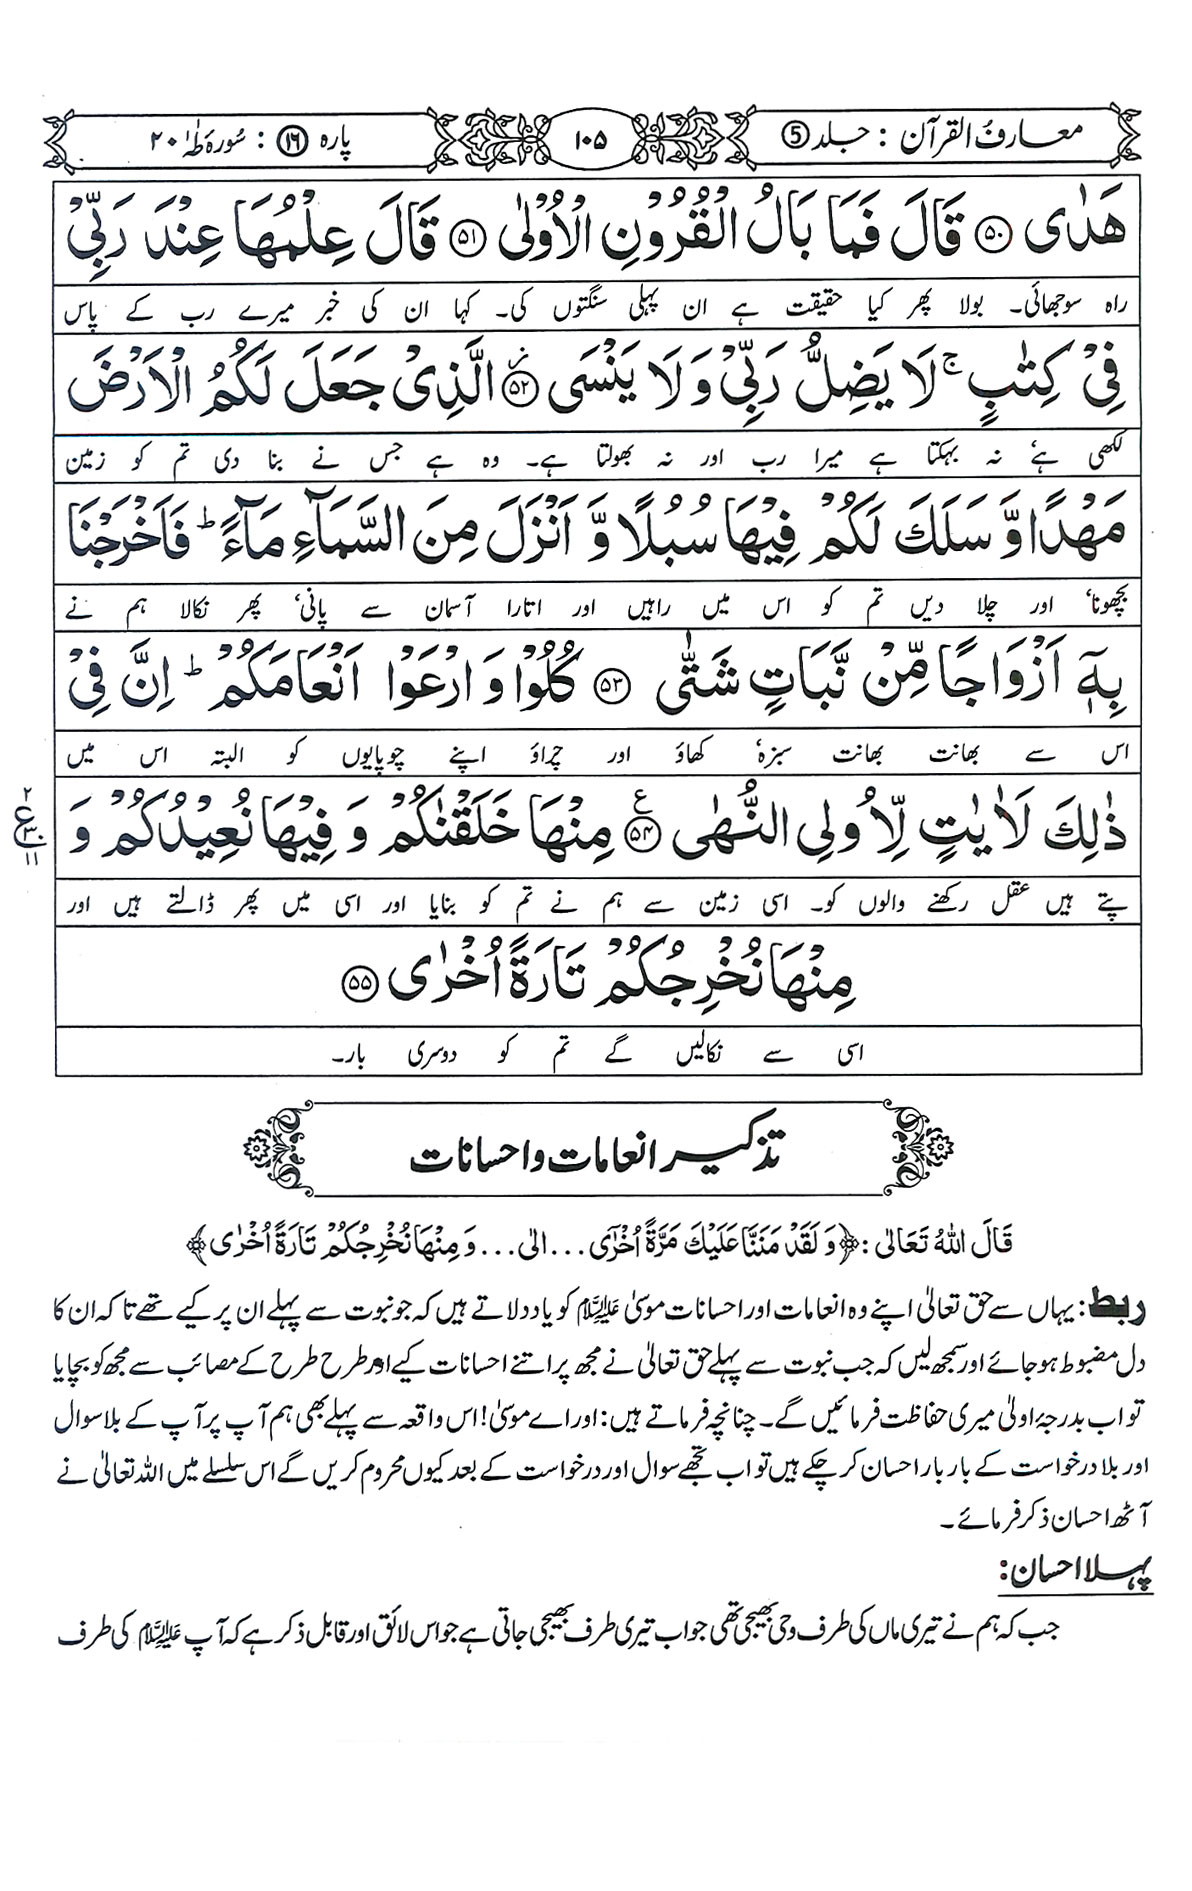 معارف القرآن : جلد ⑤
۱۰۵
پارہ ⑯ : سُورہ طٰہٰ ۲۰
هَدٰى ﴿۵۰﴾ قَالَ فَمَا بَالُ الْقُرُوْنِ الْاُوْلٰى ﴿۵۱﴾ قَالَ عِلْمُهَا عِنْدَ رَبِّىْ
راہ سوجھائی۔ بولا پھر کیا حقیقت ہے ان پہلی سنگتوں کی۔ کہا ان کی خبر میرے رب کے پاس
فِىْ كِتٰبٍ ۚ لَا يَضِلُّ رَبِّىْ وَلَا يَنْسَى ﴿۵۲﴾ الَّذِىْ جَعَلَ لَكُمُ الْاَرْضَ
لکھی ہے، نہ بہکتا ہے میرا رب اور نہ بھولتا ہے۔ وہ ہے جس نے بنا دی تم کو زمین
مَهْدًا وَّ سَلَكَ لَكُمْ فِيْهَا سُبُلًا وَّ اَنْزَلَ مِنَ السَّمَآءِ مَآءً ؕ فَاَخْرَجْنَا
بچھونا، اور چلا دیں تم کو اس میں راہیں اور اتارا آسمان سے پانی، پھر نکالا ہم نے
بِهٖۤ اَزْوَاجًا مِّنْ نَّبَاتٍ شَتّٰى ﴿۵۳﴾ كُلُوْا وَ ارْعَوْا اَنْعَامَكُمْ ؕ اِنَّ فِىْ
اس سے بھانت بھانت سبزہ، کھاؤ اور چراؤ اپنے چوپایوں کو البتہ اس میں
ذٰلِكَ لَاٰيٰتٍ لِّاُولِى النُّهٰى ﴿۵۴﴾ ع مِنْهَا خَلَقْنٰكُمْ وَ فِيْهَا نُعِيْدُكُمْ وَ
۲ ع ۳۰ ۱۱
پتے ہیں عقل رکھنے والوں کو۔ اسی زمین سے ہم نے تم کو بنایا اور اسی میں پھر ڈالتے ہیں اور
مِنْهَا نُخْرِجُكُمْ تَارَةً اُخْرٰى ﴿۵۵﴾
اسی سے نکالیں گے تم کو دوسری بار۔
تذکیر انعامات و احسانات
قَالَ اللهُ تَعَالٰى : ﴿وَ لَقَدْ مَنَنَّا عَلَيْكَ مَرَّةً اُخْرٰٓى ... الى ... وَ مِنْهَا نُخْرِجُكُمْ تَارَةً اُخْرٰى﴾
ربط: یہاں سے حق تعالیٰ اپنے وہ انعامات اور احسانات موسیٰ علیہ السلام کو یاد دلاتے ہیں کہ جو نبوت سے پہلے ان پر کیے تھے تاکہ ان کا
دل مضبوط ہو جائے اور سمجھ لیں کہ جب نبوت سے پہلے حق تعالیٰ نے مجھ پر اتنے احسانات کیے اور طرح طرح کے مصائب سے مجھ کو بچایا
تو اب بدرجۂ اولیٰ میری حفاظت فرمائیں گے۔ چنانچہ فرماتے ہیں: اور اے موسیٰ! اس واقعہ سے پہلے بھی ہم آپ پر آپ کے بلا سوال
اور بلا درخواست کے بار بار احسان کر چکے ہیں تو اب تجھے سوال اور درخواست کے بعد کیوں محروم کریں گے اس سلسلے میں اللہ تعالیٰ نے
آٹھ احسان ذکر فرمائے۔
پہلا احسان:
جب کہ ہم نے تیری ماں کی طرف وحی بھیجی تھی جو اب تیری طرف بھیجی جاتی ہے جو اس لائق اور قابل ذکر ہے کہ آپ علیہ السلام کی طرف